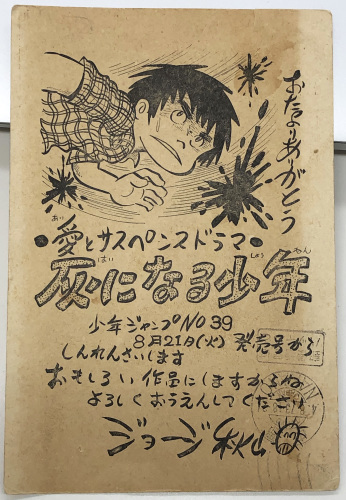 おたよりありがとう
・愛とサスペンスドラマ・
あい
灰になる少年
はい しょう ねん
少年ジャンプNO39
8月21日(火)発売号から
しんれんさいします
おもしろい作品にしますからね
よろしくおうえんしてください
ジョージ秋山